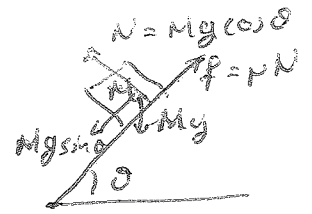 N = Mg cos θ
f = μN
M
Mg sin θ
Mg
θ